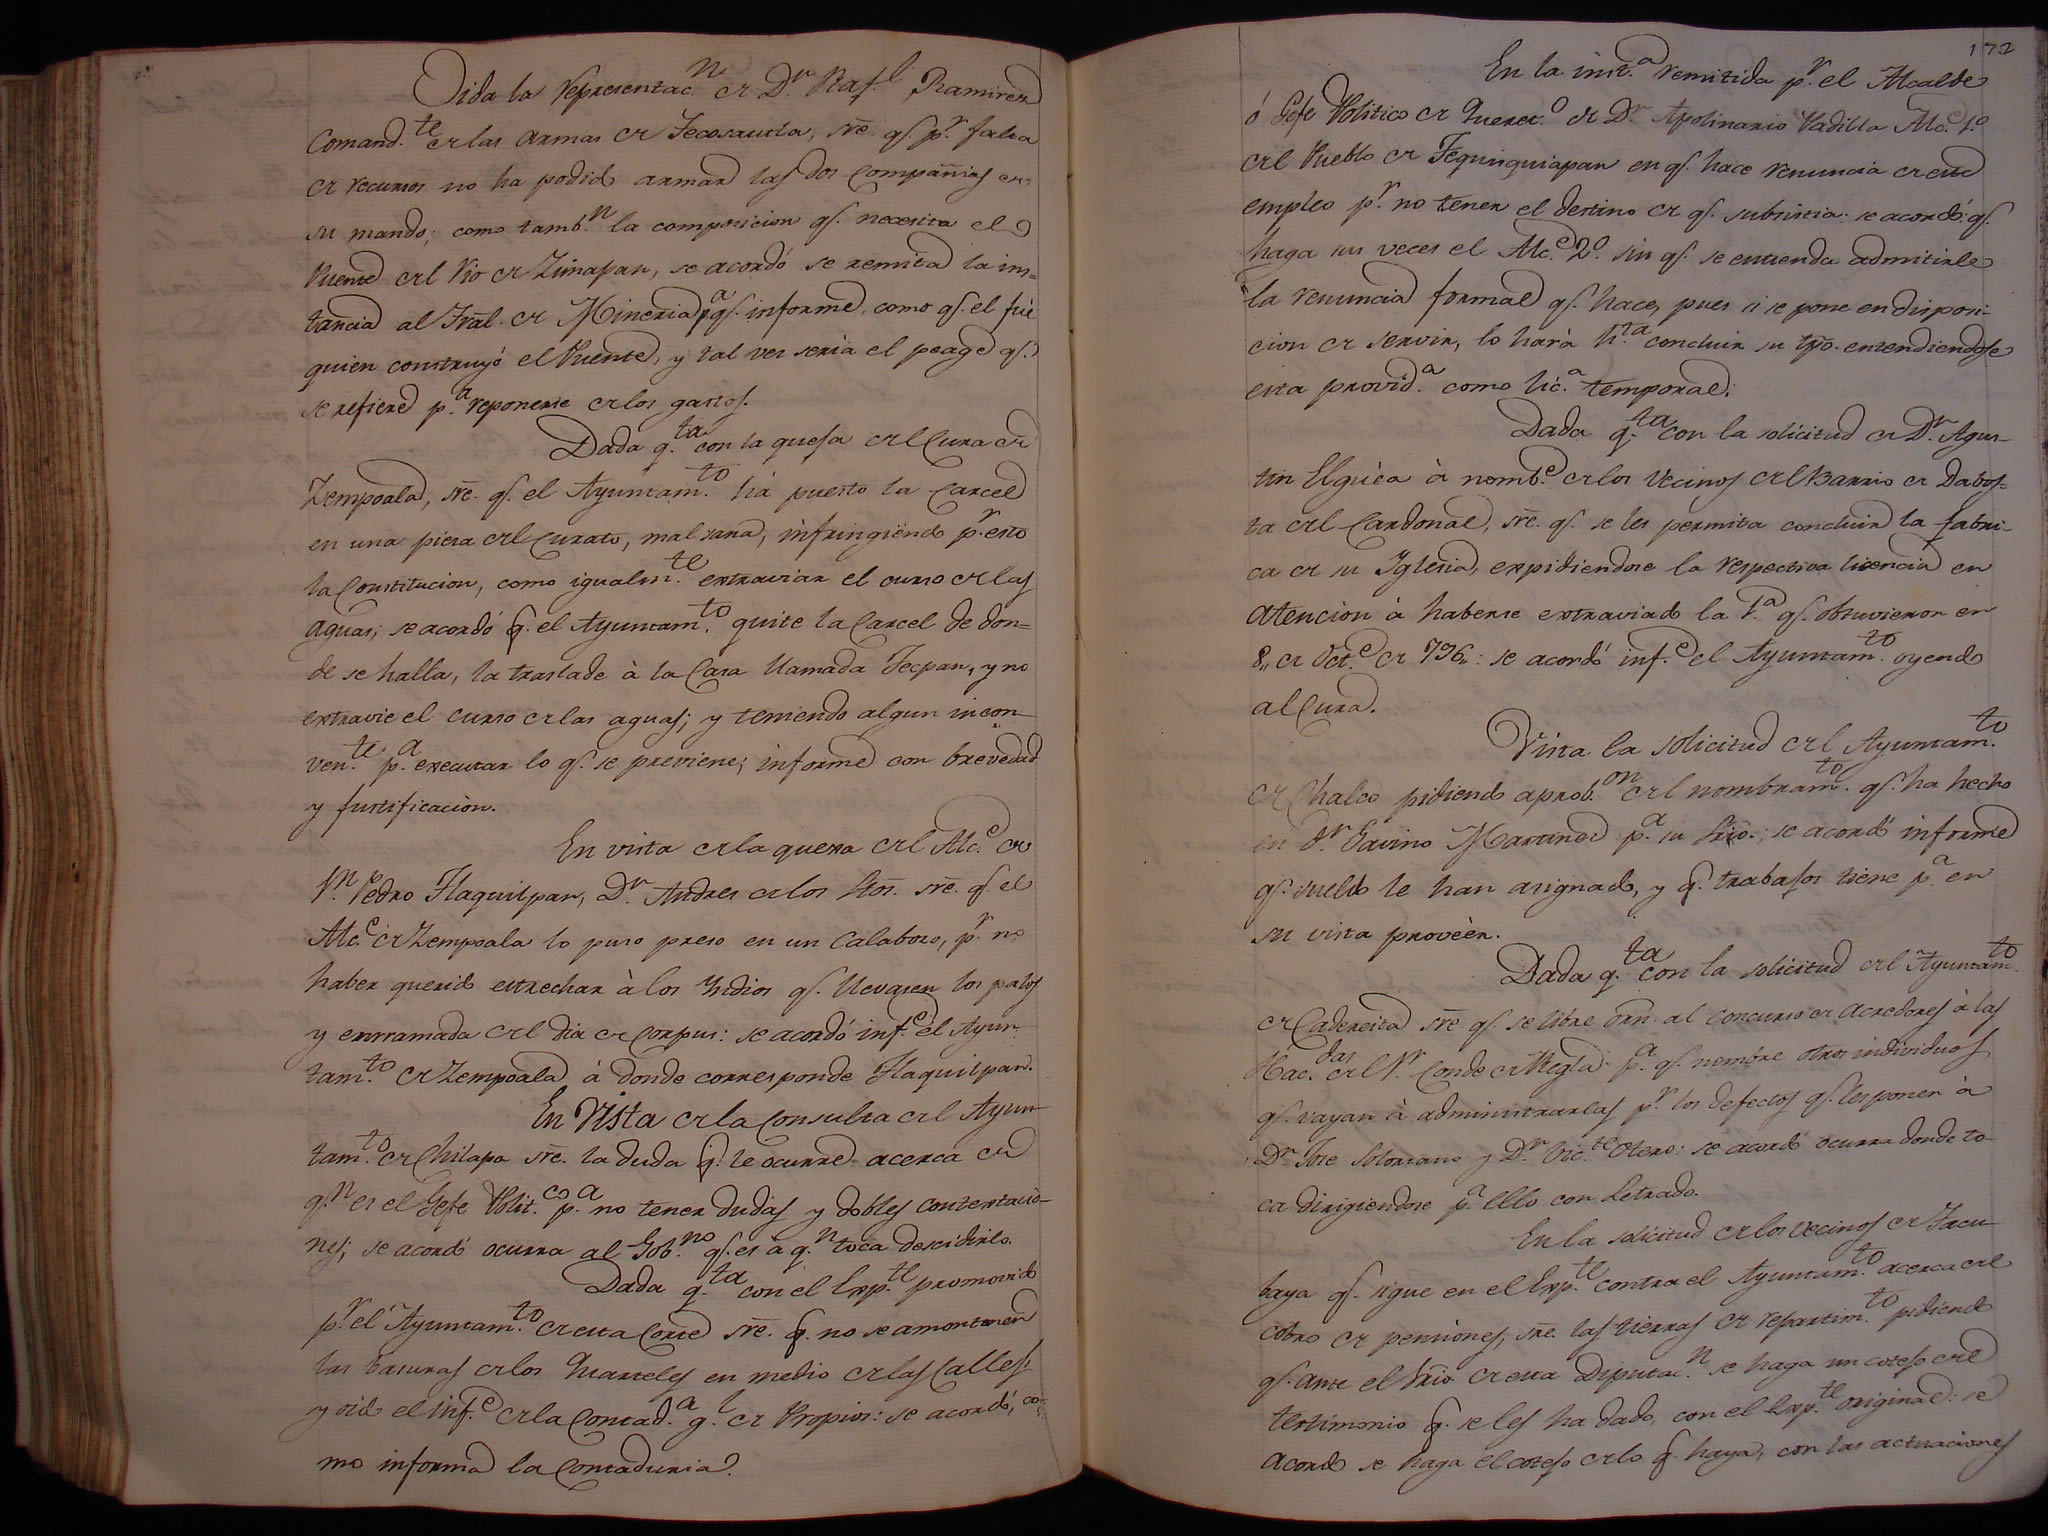 Oida la representac.n de Dn. Raf.l Ramirez
Comand.te de las armas de Tecosautla, sre. q.e p.r falta
de recursos no ha podido armar las dos Compañias de
su mando; como tamb.n la composicion q.e necesita el
Puente del Rio de Zimapan, se acordó se remita la ins-
tancia al Tral. de Mineria p.a q.e informe, como q.e el fué
quien construyó el Puente, y tal vez seria el peage q.e
se refiere p.a reponerse de los gastos.
Dada q.ta con la quexa del Cura de
Zempoala, sre. q.e el Ayuntam.to há puesto la Carcel
en una pieza del Curato, mal sana, infringiendo p.r esto
la Constitucion, como igualm.te extraviar el curso de las
aguas; se acordó q.e el Ayuntam.to quite la Carcel de don-
de se halla, la traslade à la Casa llamada Tecpan, y no
extravie el curso de las aguas; y teniendo algun incon-
ven.te p.a executar lo q.e se previene; informe con brevedad
y justificacion.
En vista de la quexa del Alc.e de
Sn. Pedro Tlaquilpan, Dn. Andres de los Stos. sre. q.e el
Alc.e de Zempoala lo puso preso en un Calabozo, p.r no
haber querido estrechar à los Yndios q.e llevasen los palos
y enrramada del dia de Corpus: se acordó inf.e el Ayun-
tam.to de Zempoala á donde corresponde Tlaquilpan.
En Vista de la Consulta del Ayun-
tam.to de Chilapa sre. la duda q.e le ocurre acerca de
q.n es el Gefe Polit.co p.a no tener dudas y dobles contestacio-
nes; se acordó ocurra al Gob.no q.e es à q.n toca descidirlo.
Dada q.ta con el Exp.te promovido
p.r el Ayuntam.to de esta Corte sre. q.e no se amontonen
las basuras de los Quarteles en medio de las Calles,
y oido el inf.e de la Contad.a g.l de Propios: se acordó, co-
mo informa la Contaduria.
172
En la inst.a remitida p.r el Alcalde
ó Gefe Politico de Queret.o de Dn. Apolinario Vadillo Alc.e 1.o
del Pueblo de Tequisquiapan en q.e hace renuncia de este
empleo p.r no tener el destino de q.e subsistia: se acordó q.e
haga sus veces el Alc.e 2.o sin q.e se entienda admitirle
la renuncia formal q.e hace, pues si se pone en disposi-
cion de servir, lo hará h.ta concluir su tpo. entendiendose
esta provid.a como lic.a temporal.
Dada q.ta con la solicitud de Dn. Agus-
tin Elguèa à nomb.e de los Vecinos del Barrio de Dabos-
ta del Cardonal, sre. q.e se les permita concluir la fabri-
ca de su Yglesia, expidiendose la respectiva licencia en
atencion à haberse extraviado la 1.a q.e obtuvieron en
8,, de Oct.e de 796,,: se acordó inf.e el Ayuntam.to oyendo
al Cura.
Vista la solicitud del Ayuntam.to
de Chalco pidiendo aprob.on del nombram.to q.e ha hecho
en Dn. Gavino Martinez p.a su Srio.; se acordó informe
q.e sueldo le han asignado, y q.e trabajos tiene p.a en
su vista proveèr.
Dada q.ta con la solicitud del Ayuntam.to
de Cadereita sre q.e se libre orn. al concurso de Acredores à las
Hac.das del Sr. Conde de Regla p.a q.e nombre otros individuos
q.e vayan à administrarlas p.r los defectos q.e les ponen à
Dn. Jose Solorzano y Dn. Vic.te Otero: se acordó ocurra donde to-
ca dirigiendose p.a ello con Letrado.
En la solicitud de los Vecinos de Tacu-
baya q.e sigue en el Exp.te contra el Ayuntam.to acerca del
cobro de pensiones, sre. las tierras de repartim.to pidiendo
q.e ante el Srio. de esta Diputac.n se haga un cotejo del
testimonio q.e se les ha dado, con el Exp.te original: se
acordó se haga el cotejo de lo q.e haya, con las actuaciones